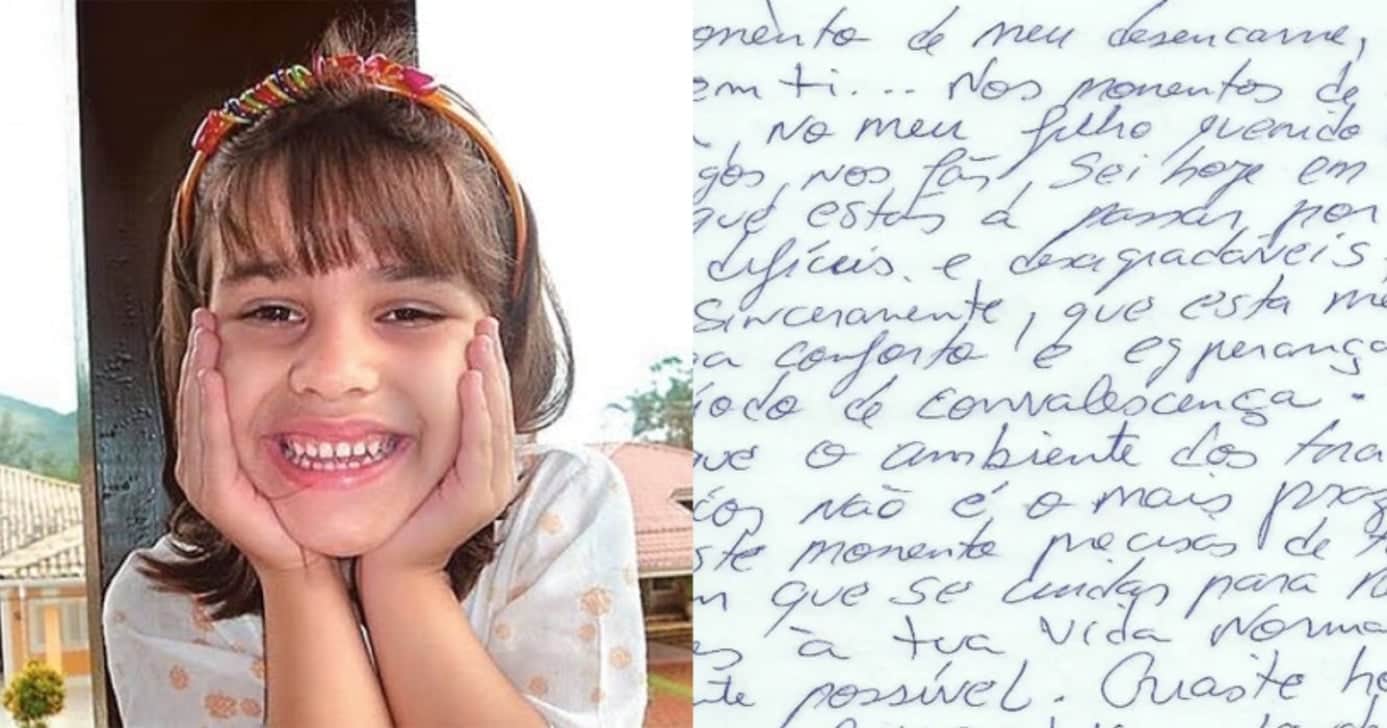 omento de meu desencarne,
em ti... Nos momentos de
, no meu filho querido
gos, nos fãs, Sei hoje em
que estás a passar por
difíceis e desagradáveis,
sinceramente, que esta me
a conforto e esperança
íodo de convalescença.
que o ambiente dos
cos não é o mais praz
ste momento precisas de
m que se cuidas para
à tua vida norma
te possível. Quaste ho